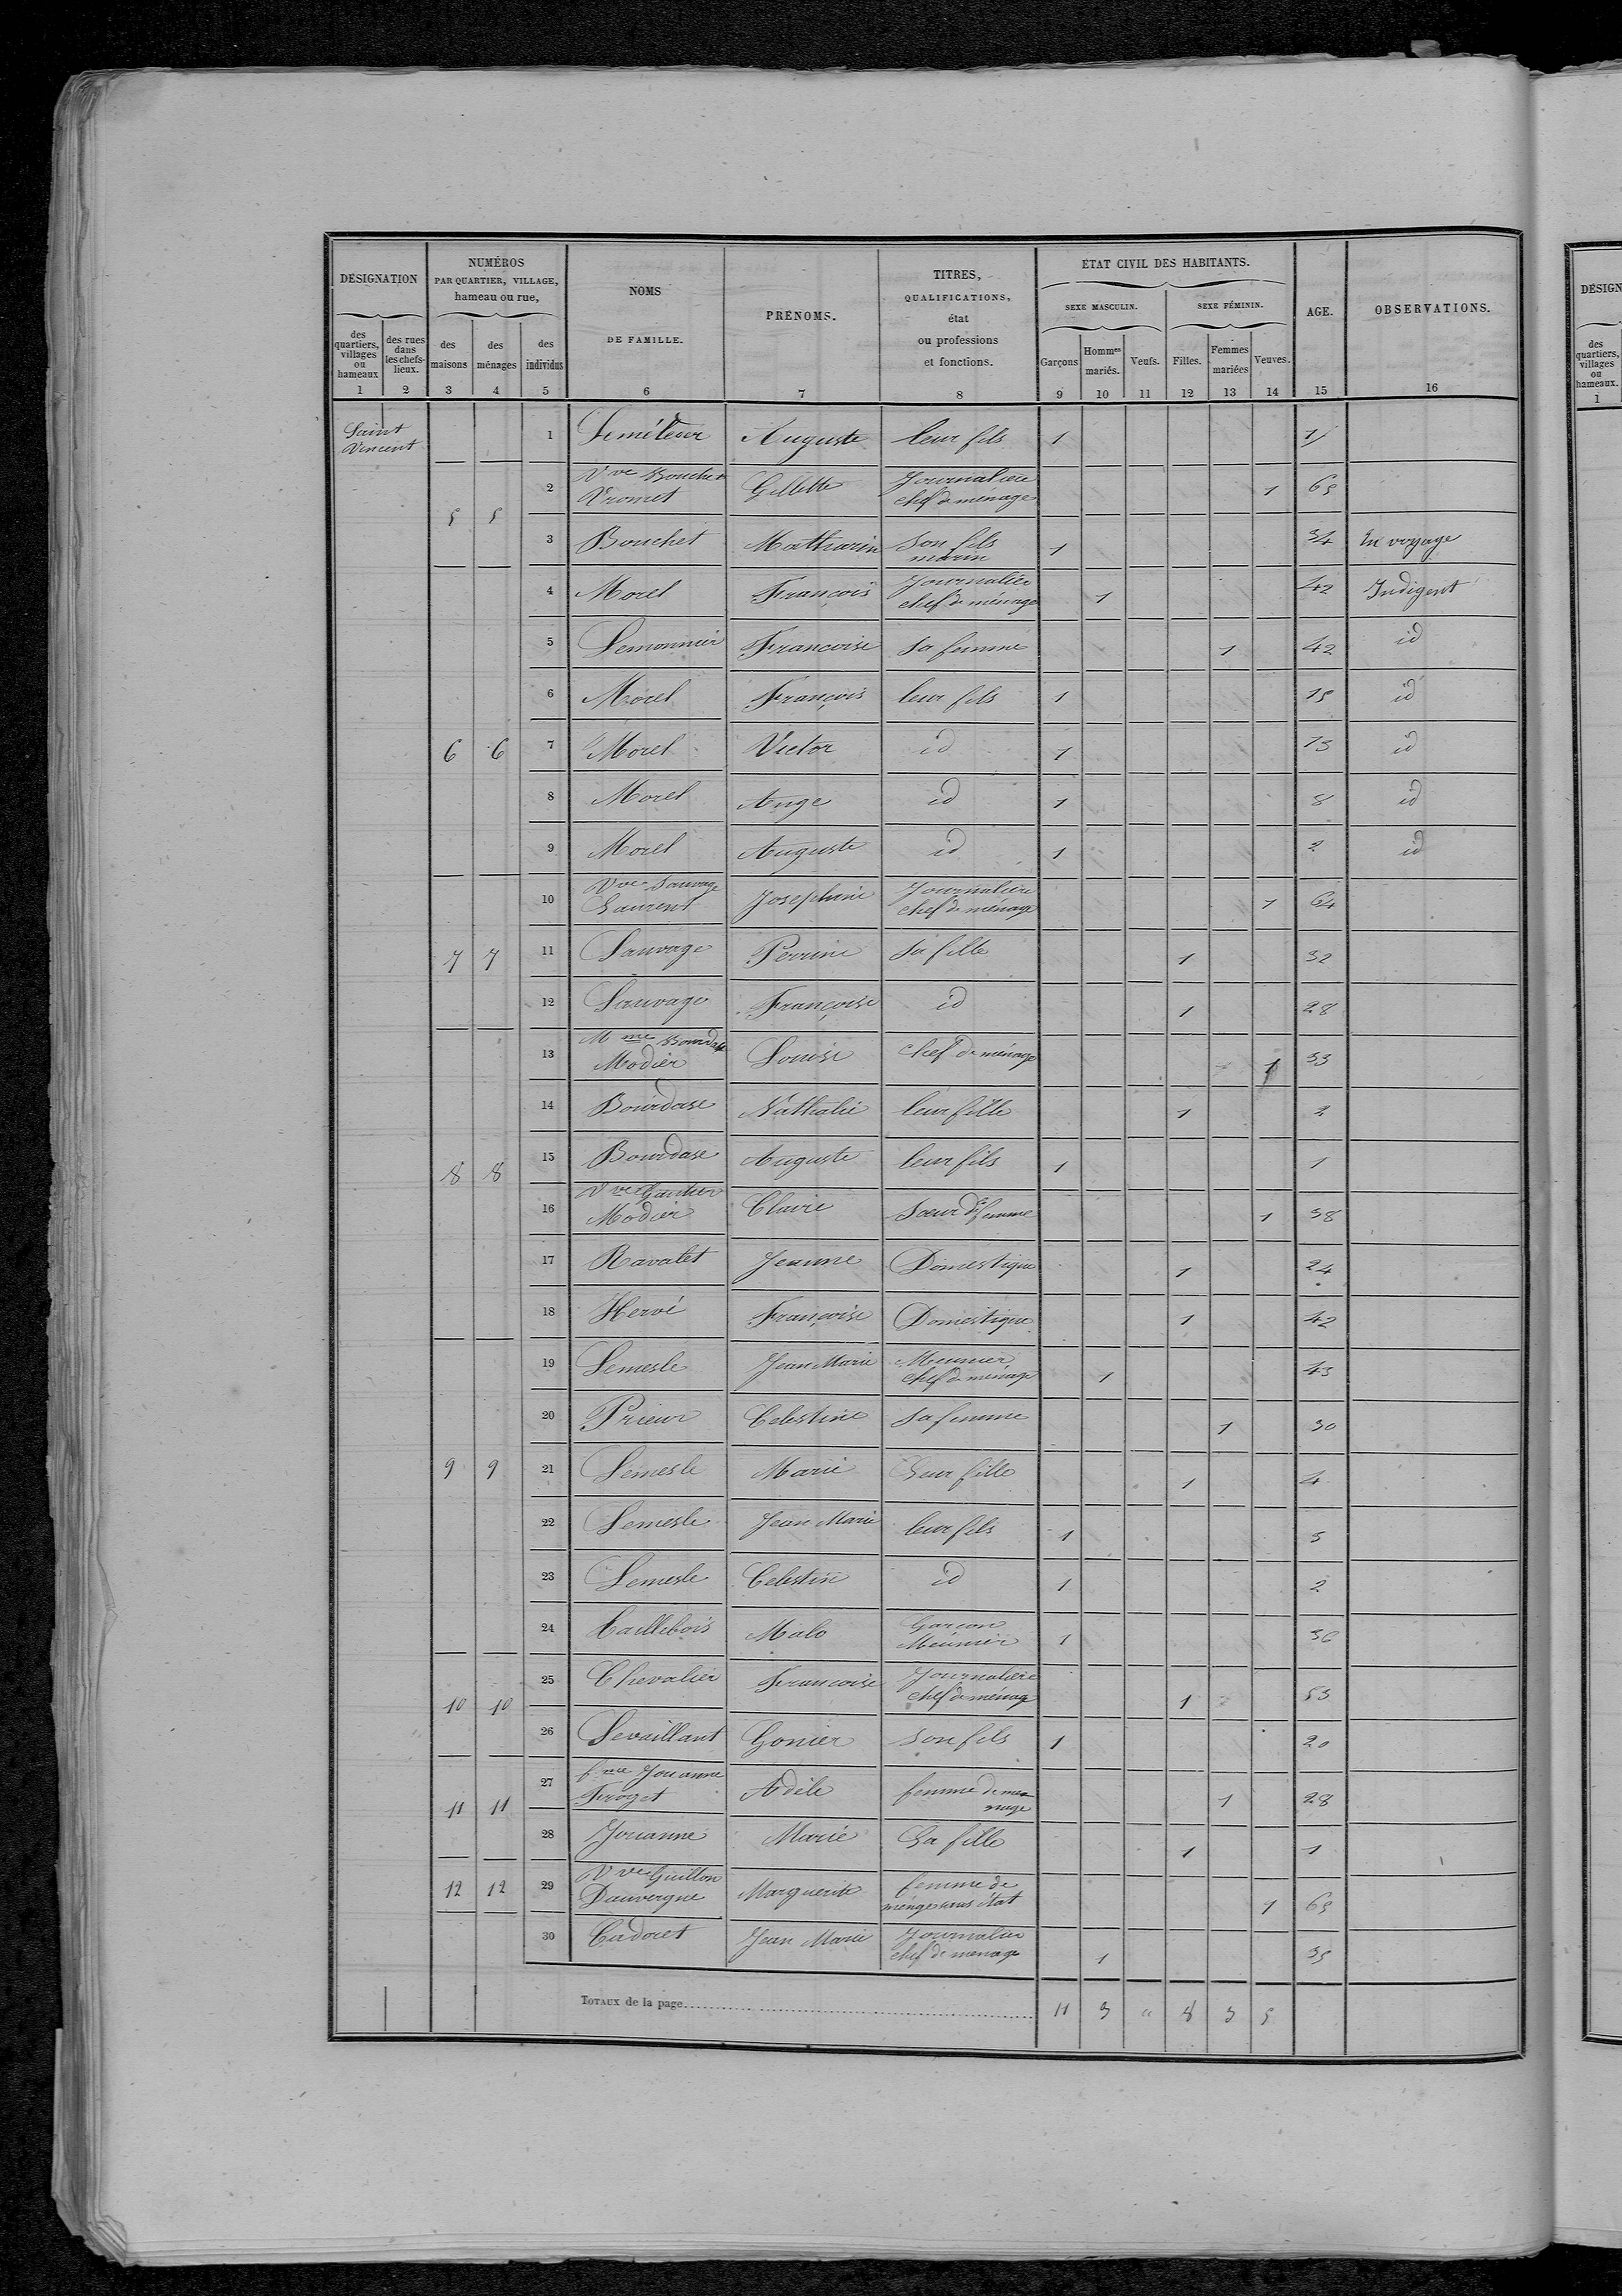 DÉSIGNATION
NUMÉROS
PAR QUARTIER, VILLAGE,
hameau ou rue,
NOMS
DE FAMILLE.
PRÉNOMS.
TITRES,
QUALIFICATIONS,
état
ou professions
et fonctions.
ÉTAT CIVIL DES HABITANTS.
SEXE MASCULIN. SEXE FÉMININ.
AGE.
OBSERVATIONS.
des quartiers, villages ou hameaux
des rues dans les chefs-lieux.
des maisons
des ménages
des individus
Garçons Hommes mariés. Veufs. Filles. Femmes mariées Veuves.
1 2 3 4 5 6 7 8 9 10 11 12 13 14 15 16
Saint Vincent
1 Auguste leur fils 1
2 Vve Bouchet Vromet Gillette Journalière chef de ménage 1 65
5 5
3 Bouchet Mathurin Son fils marin 1 34 En voyage
4 Morel François Journalier chef de ménage 1 42 Indigent
5 Lemonnier Francoise Sa femme 1 42 id
6 Morel François leur fils 1 15 id
6 6 7 Morel Victor id 1 13 id
8 Morel Ange id 1 8 id
9 Morel Auguste id 1 2 id
10 Vve Sauvage Laurent Josephine Journalière chef de ménage 1 64
7 7 11 Sauvage Perrine Sa fille 1 32
12 Sauvage Françoise id 1 28
13 Mme Bourdase Modier Louise chef de ménage 1 33
14 Bourdase Nathalie leur fille 1 2
8 8 15 Bourdase Auguste leur fils 1 1
16 Vve Gautier Modier Claire Soeur de femme 1 38
17 Ravalet Jeanne Domestique 1 24
18 Hervé Françoise Domestique 1 42
19 Lemesle Jean Marie Meunier chef de ménage 1 43
20 Prieur Celestine Sa femme 1 30
9 9 21 Lemesle Marie Leur fille 1 4
22 Lemesle Jean Marie leur fils 1 3
23 Lemesle Celestin id 1 2
24 Taillebois Malo Garçon Meunier 1 36
25 Chevalier Francoise Journalière chef de ménage 1 53
10 10
26 Levaillant Gonier Son fils 1 20
27 fme Jouanne Froget Adèle femme de menage 1 28
11 11
28 Jouanne Marie Sa fille 1 1
12 12 29 Vve Guillon Dauvergne Marguerite femme de ménge sans état 1 65
30 Cadoret Jean Marie Journalier chef de menage 1 35
TOTAUX de la page 11 3 " 8 3 5
DÉSIGN
des quartiers, villages ou hameaux.
1